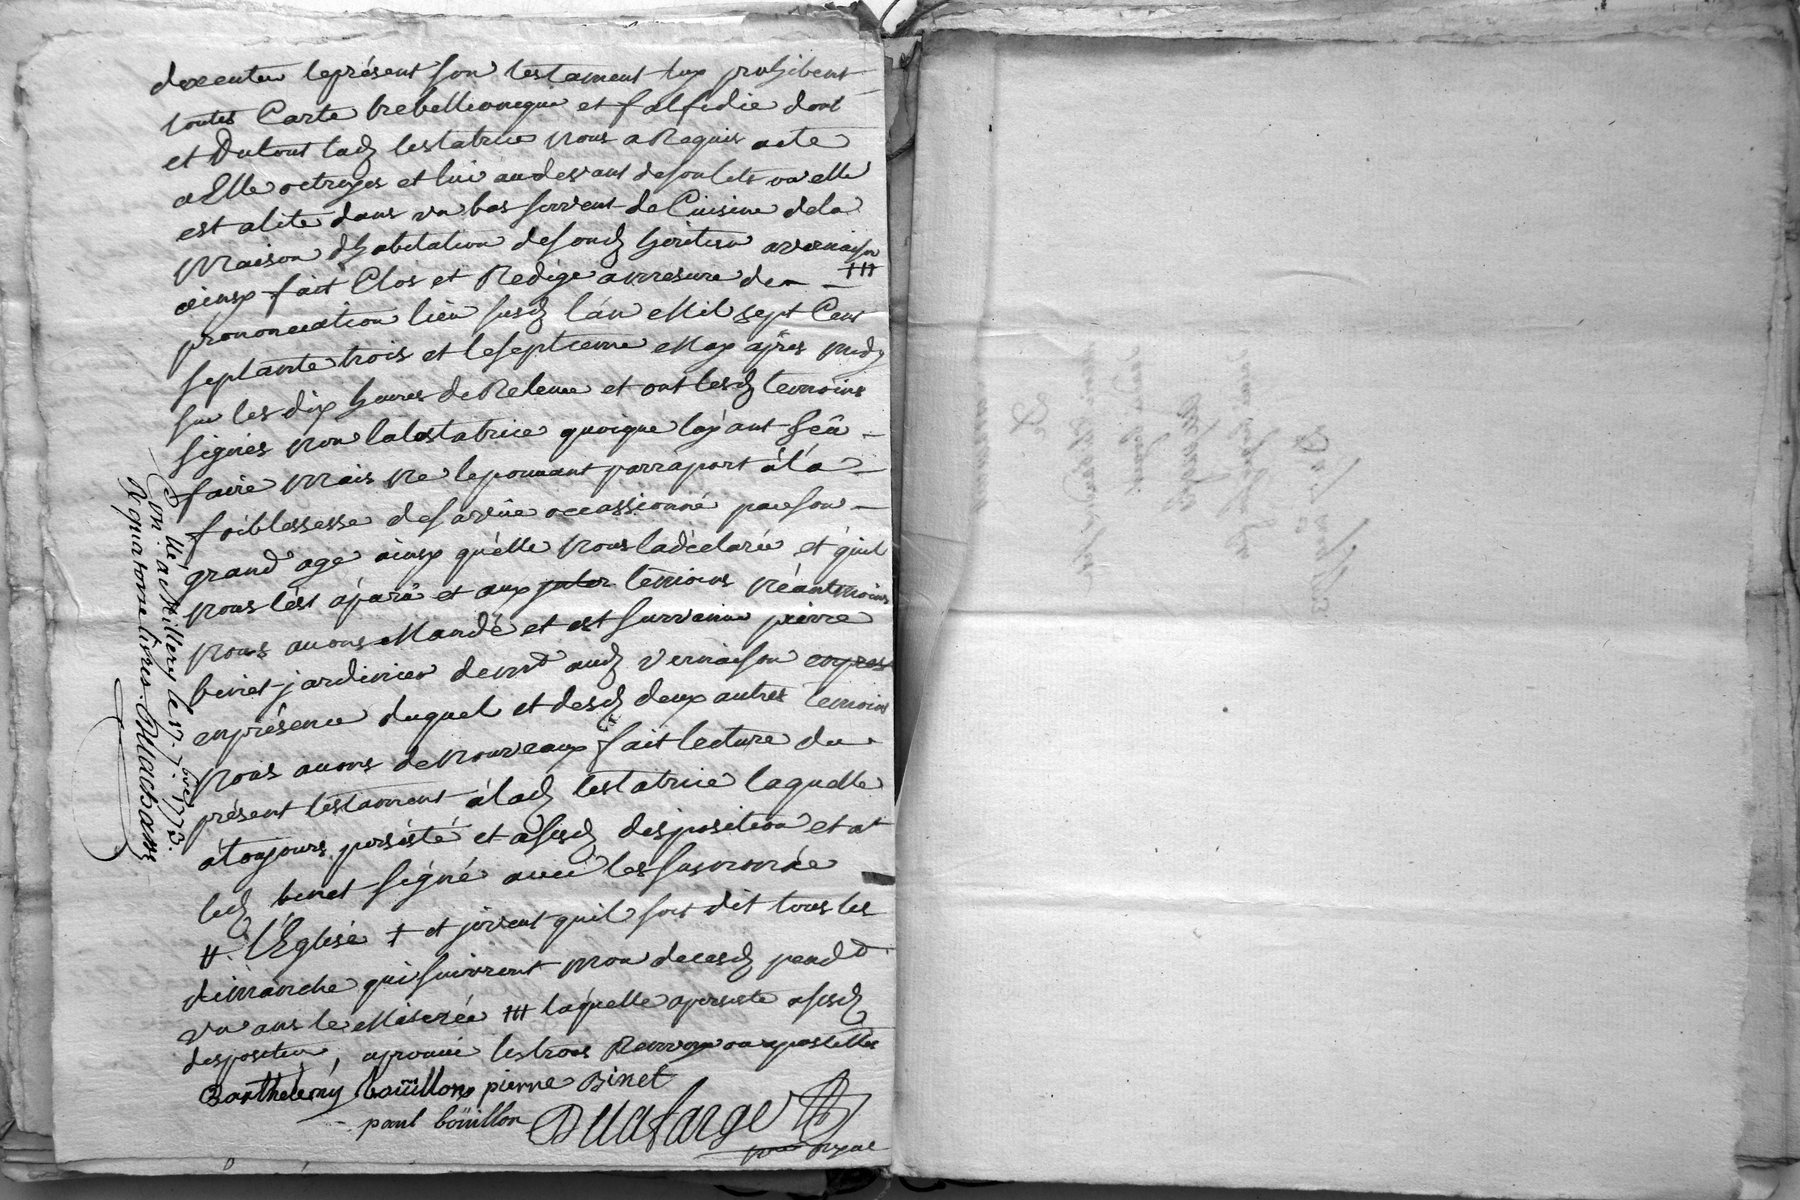 d'executer leprésent son testament luy prohibent
toutes Carte trebellionique et falfidie dont
et Dutout lad testatrice nous a Requis acte
a Elle octroyes et lui audevant desonlits ou elle
est alite dans un bas servent de Cuisine dela
Maison d'habitation desond heritier avernaison
ainsy fait Clos et Redigé amresure de ///
prononciation lieu susd l'an Mil sept Cent
septante trois et leseptieme May apres midy
sur les dix heures de Relevee et ont lesd temoins
signés non latestatrice quoique layant sçû
faire Mais ne lepouvant parraport à la
foiblessesse desavüe occassionné parson
grand age ainsy qu'elle nous ladéclarée et quil
nous lést aparû et aux temoins néantmoins
nous avons Mandé et est survenu pierre
binet jardinier demt aud Vernaison
enprésence duquel et desd deux autres temoins
nous avons de nouveaux fait lecture du
présent testament à lad testatrice laquelle
à toujours persisté et asesd disposition et at
led binet signé avec les susnomée
# l'Eglise † et jovent quil soit dit tous les
dimanche qui suivront mon decesd pendt
un ans le Miserée ### laquelle apersisté asesd
disposition, aprouvé les trois Renvoy ou apostilles
Barthelemy boüillon pierre Binet
paul boüillon Dulafarge
nore Royal
Con. llé a Millery le 17. 7.bre 1773.
R quatorze livres. Machans